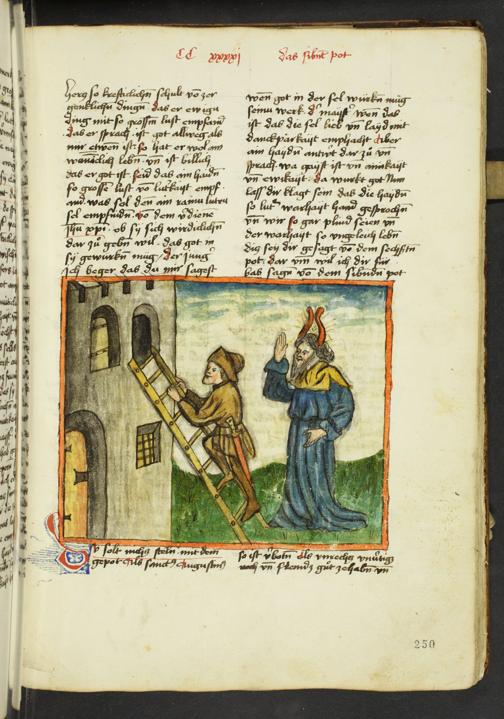 CC xxxxj das sibnt pot
so kreftiklichn schule vo zer
genklichn dingn das er ewign
ding mit so grossm lust empfand
das er sprach ist got allweg als
nur ewen ist so hat er wol ain
lebn vn ist billich
das er got ist seid das ain haidn
so grosse lust vo empf
and was sol den ain rainu lutru
sel empfindn vo dem
jhu xpi ob sy sich wirdiclichn
dar zu gebn wil das got in
sy gewurkn mug der jung
jch beger das du mir sagest
wen got in der sel wurkn mug
seinu werk d maist wen das
ist das die sel lieb vn layd mit
danckparkayt emphacht aber
ain haydn antwrt dar zu vn
sprach wa gaist ist vn ainikayt
vn ewikayt da wurkt got Nun
lass dir klagt sein das die haydn
so lutr warhayt hand gesprochn
vn wir so gar plind seien vn
der warhayt so ungleich lebn
dis sey dir gesagt vo dem sechsttn
pot dar vm wil ich dir fur
bas sagn vo dem sibndn pot
Dv solt nichtz steln mit dem
gepot als sanctus Augustinus
so ist vbotn als vnrechts
vnd fremdz gut zehabn vn
250